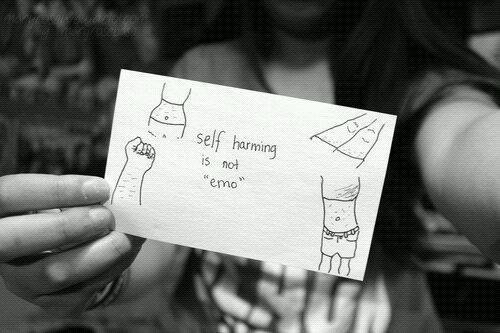 self harming
is not
"emo"